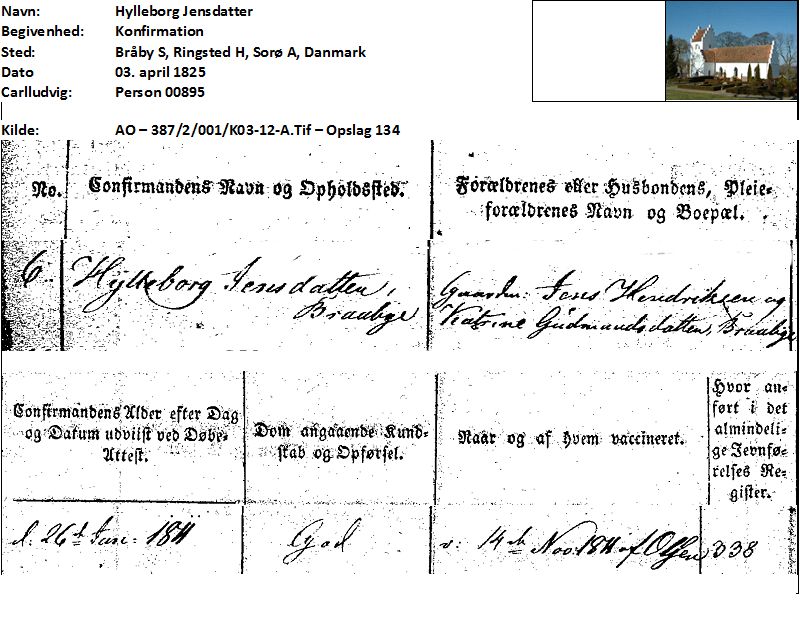 Navn: Hylleborg Jensdatter
Begivenhed: Konfirmation
Sted: Bråby S, Ringsted H, Sorø A, Danmark
Dato 03. april 1825
Carlludvig: Person 00895
Kilde: AO – 387/2/001/K03-12-A.Tif – Opslag 134
No.
Confirmandens Navn og Opholdssted.
Forældrenes eller Husbondens, Pleie-
forældrenes Navn og Boepæl.
6
Hylleborg Jensdatter,
Braabye
Gaardm: Jens Hendriksen og
Katrine Gudmandsdatter, Braabye
Confirmandens Alder efter Dag
og Datum udviist ved Døbe-
Attest.
Dom angaaende Kund-
skab og Opførsel.
Naar og af hvem vaccineret.
Hvor an-
ført i det
almindeli-
ge Jevnfø-
relses Re-
gister.
d. 26de Jan: 1811
God
v: 14de Nov: 1811 af Olsen
338